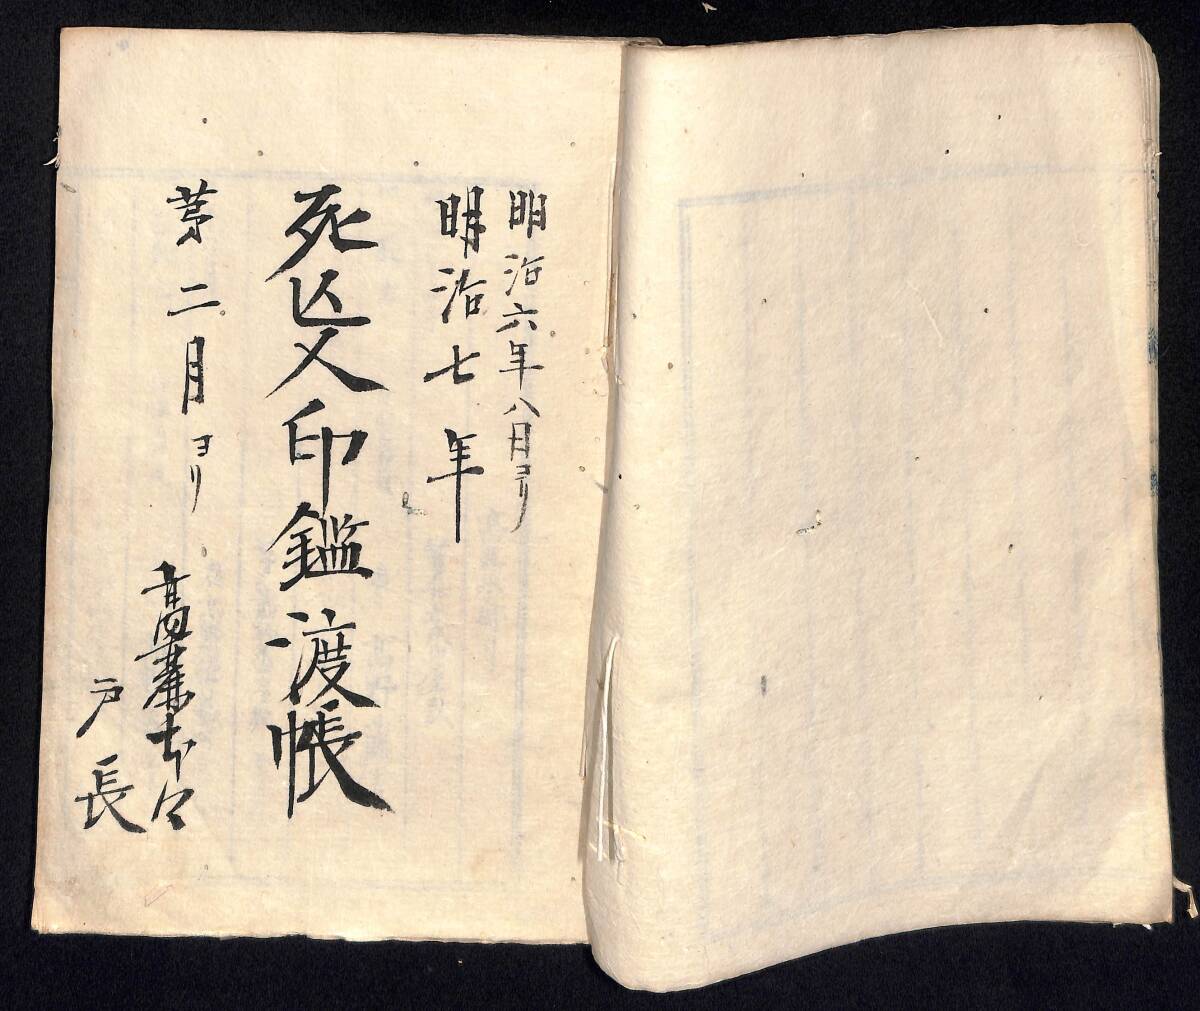 明治六年八月ヨリ
明治七年
死亡人印鑑渡帳
第二月ヨリ
高麻
戸長